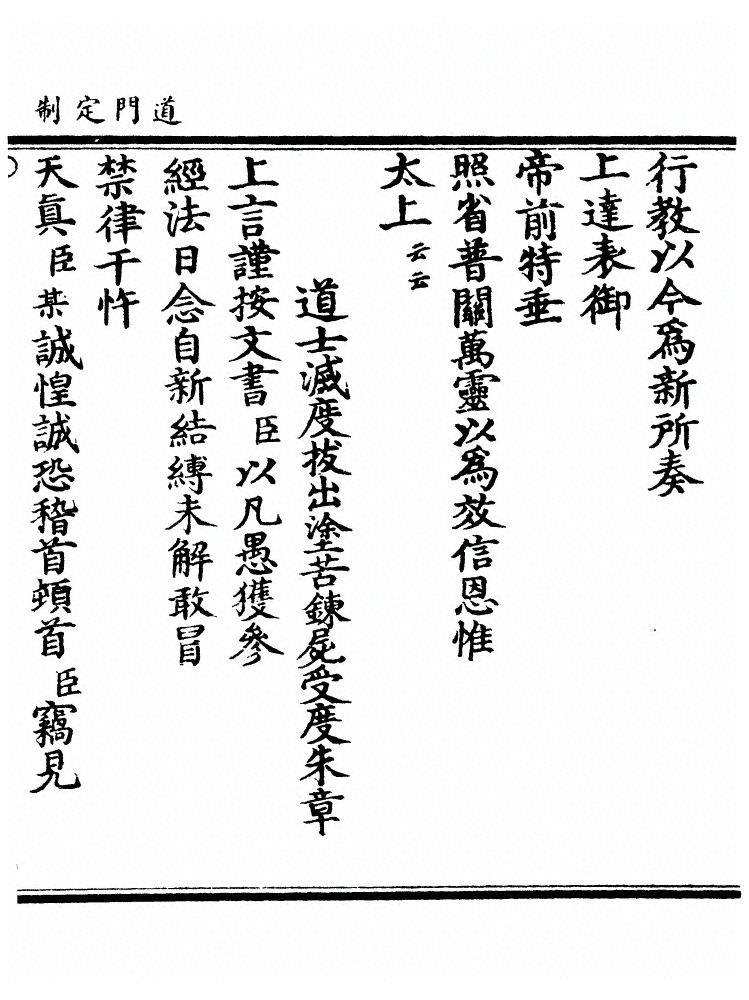 道門定制
行教以今爲新所奏
上達表御
帝前特垂
照省普關萬靈以爲效信恩惟
太上云云
道士滅度拔出塗苦鍊屍受度朱章
上言謹按文書臣以凡愚獲參
經法日念自新結縛未解敢冒
禁律干忤
天眞臣某誠惶誠恐稽首頓首臣竊見